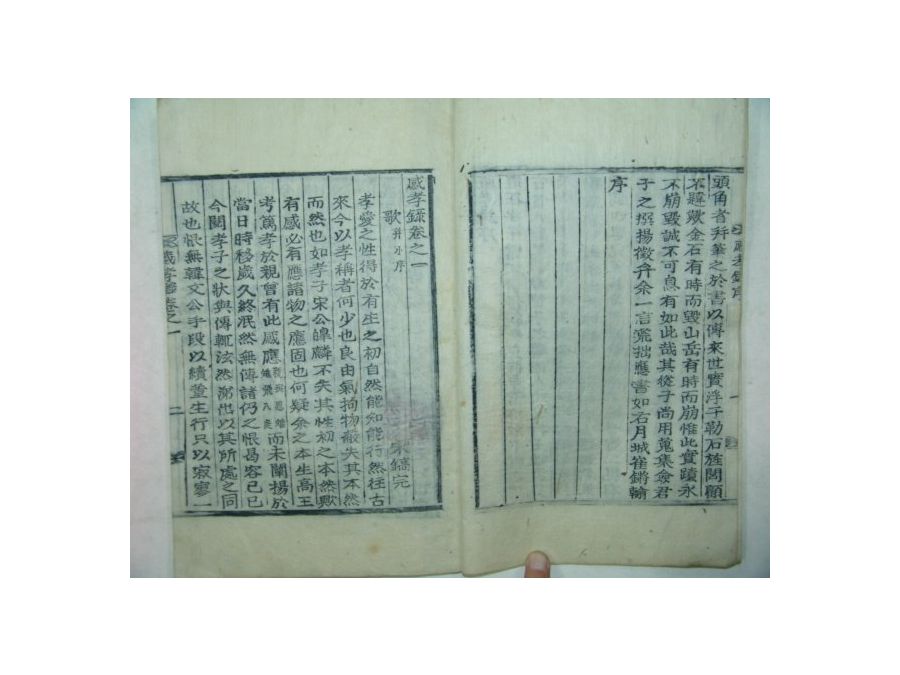 頭角者幷筆之於書以傳來世實浮于勒石旌閭顧
不韙歟金石有時而毀山岳有時而崩惟此實蹟永
不崩毀誠不可息有如此哉其從子尚用蒐集僉君
子之撰揚徵弁余一言忘拙應書如右月城崔鏘翰
序
感孝錄卷之一
歌幷小序
宋鎬完
孝愛之性得於有生之初自然能知能行然往古
來今以孝稱者何少也良由氣拘物蔽失其本然
而然也如孝子宋公皥麟不失其性初之本然歟
有感必有應諸物之應固也何疑余之本生高王
考篤孝於親曾有此感應而未闡揚於
當日時移歲久終泯然無傳諸仍之恨曷容已已
今閱孝子之狀與傳輒泫然涕出以其所處之同
故也恨無韓文公手段以續董生行只以寂寥一
感孝錄卷之一
二
感孝錄序